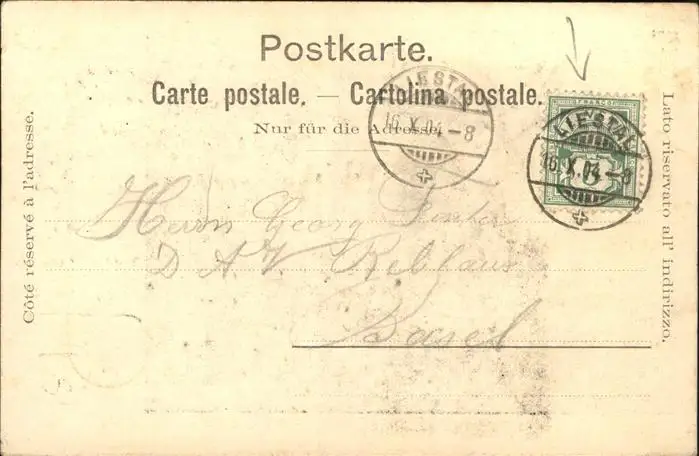 Postkarte.
Carte postale. — Cartolina postale.
Nur für die Adresse.
Côté réservé à l'adresse.
Lato riservato all' indirizzo.
LIESTAL
16.X.04.-8
FRANCO
5
LIESTAL
16.X.04.-8
Herrn Georg
D A V Reblaus
Basel